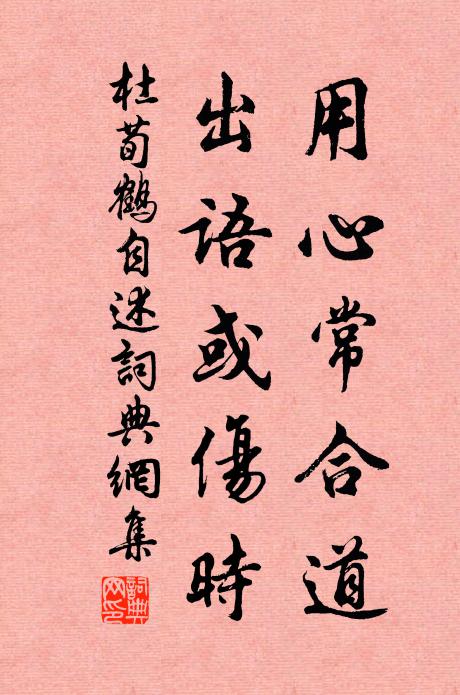 用心常合道
出語或傷時
杜荀鶴自述詞典網集
詞典
网印